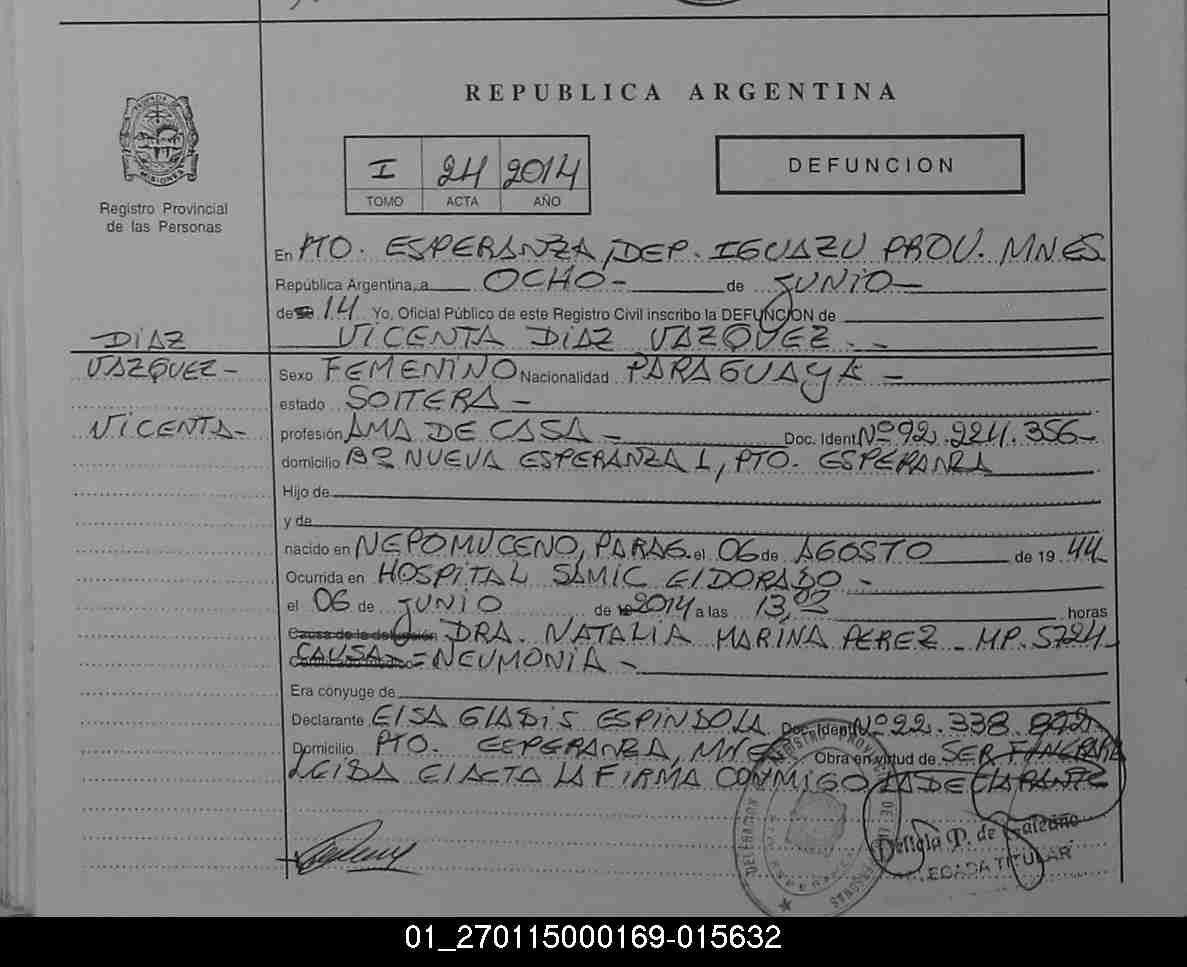 REPUBLICA ARGENTINA
MISIONES
Registro Provincial
de las Personas
I 24 2014
TOMO ACTA AÑO
DEFUNCION
En PTO. ESPERANZA, DEP. IGUAZU PROV. MNES.
República Argentina, a OCHO- de JUNIO-
de 14 Yo, Oficial Público de este Registro Civil inscribo la DEFUNCION de
VICENTA DIAZ VAZQUEZ.-
DIAZ
VAZQUEZ-
VICENTA-
Sexo FEMENINO Nacionalidad PARAGUAYA-
estado SOLTERA-
profesión AMA DE CASA- Doc. Ident. Nº 92.224.356-
domicilio Bº NUEVA ESPERANZA 1, PTO. ESPERANZA
Hijo de
y de
nacido en NEPOMUCENO, PARAG. el 06 de AGOSTO de 19 44
Ocurrida en HOSPITAL SAMIC ELDORADO-
el 06 de JUNIO de 2014 a las 13, horas
Causa de la defunción DRA. NATALIA MARINA PEREZ - MP. 5724-
CAUSA = NEUMONIA-
Era cónyuge de
Declarante ELSA GLADIS ESPINDOLA Doc. Ident. Nº 22.338.
Domicilio PTO. ESPERANZA, MNES Obra en virtud de SER
LEIDA EL ACTA LA FIRMA CONMIGO LA DECLARANTE
P. de Galeano
TITULAR
01_270115000169-015632